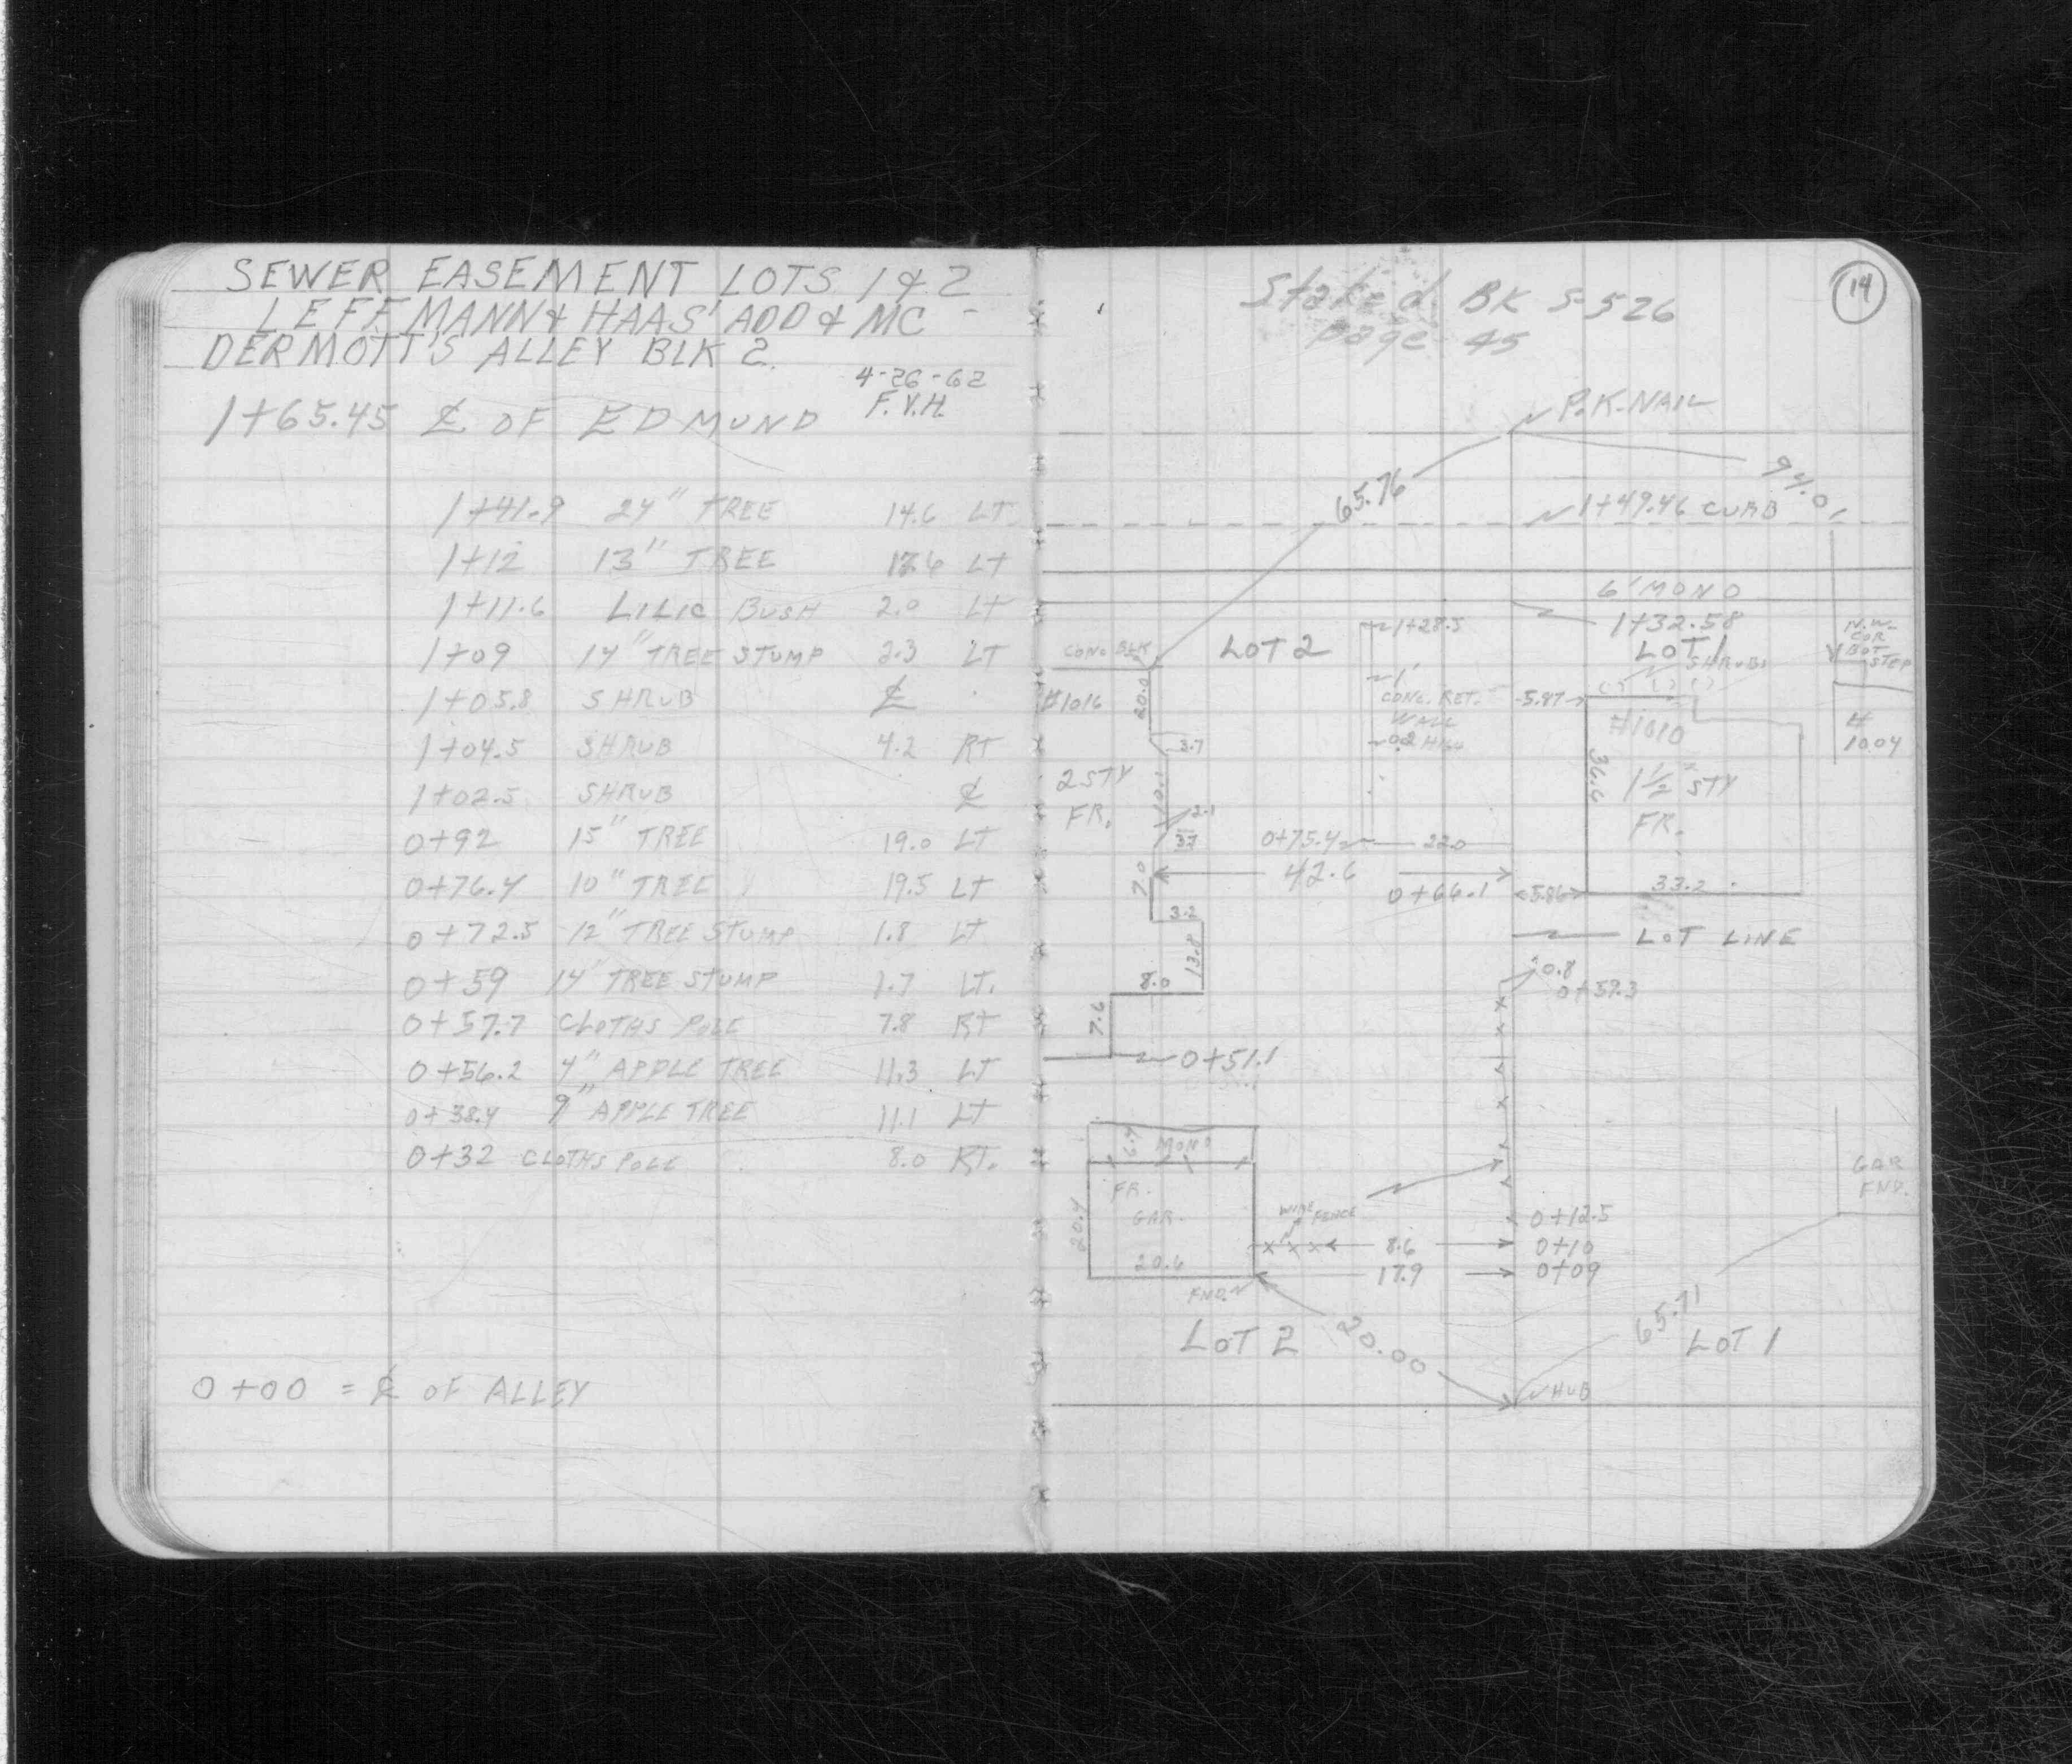 SEWER EASEMENT LOTS 1 & 2
LEFFMANN & HAAS' ADD & MC-
DERMOTT'S ALLEY BLK 2.
4-26-62
F.V.H.
1+65.45 ℄ OF EDMUND
1+41.9 24" TREE 14.6 LT
1+12 13" TREE LT
1+11.6 LILIC BUSH 2.0 LT
1+09 14" TREE STUMP 2.3 LT
1+05.8 SHRUB ℄
1+04.5 SHRUB 4.2 RT
1+02.5 SHRUB ℄
0+92 15" TREE 19.0 LT
0+76.4 10" TREE 19.5 LT
0+72.5 12" TREE STUMP 1.8 LT
0+59 14" TREE STUMP 1.7 LT.
0+57.7 CLOTHS POLE 7.8 RT
0+56.2 4" APPLE TREE 11.3 LT
0+38.4 9" APPLE TREE 11.1 LT
0+32 CLOTHS POLE 8.0 RT.
0+00 = ℄ OF ALLEY
14
Staked BK S-526
page 45
P.K. NAIL
65.76
94.0
1+49.46 CURB
6' MONO
1+32.58
LOT 1
SHRUBS
N.W.
COR
BOT
STEP
CONC BLK
LOT 2
1+28.5
1'
CONC. RET.
WALL
HIGH
5.87
#1016
20.0
3.7
#1010
36.6
1½ STY
FR.
33.2
#
1004
2 STY
FR.
10.1
2.1
37
0+75.4
22.0
7.0
42.6
0+66.1
5.86
3.2
LOT LINE
13.8
8.0
0.8
7.6
0+51.1
6.7
MONO
FR.
GAR.
20.4
20.6
FND.
WIRE
FENCE
8.6
17.9
0+12.5
0+10
0+09
GAR
FND.
LOT 2
20.00
65.71
LOT 1
HUB